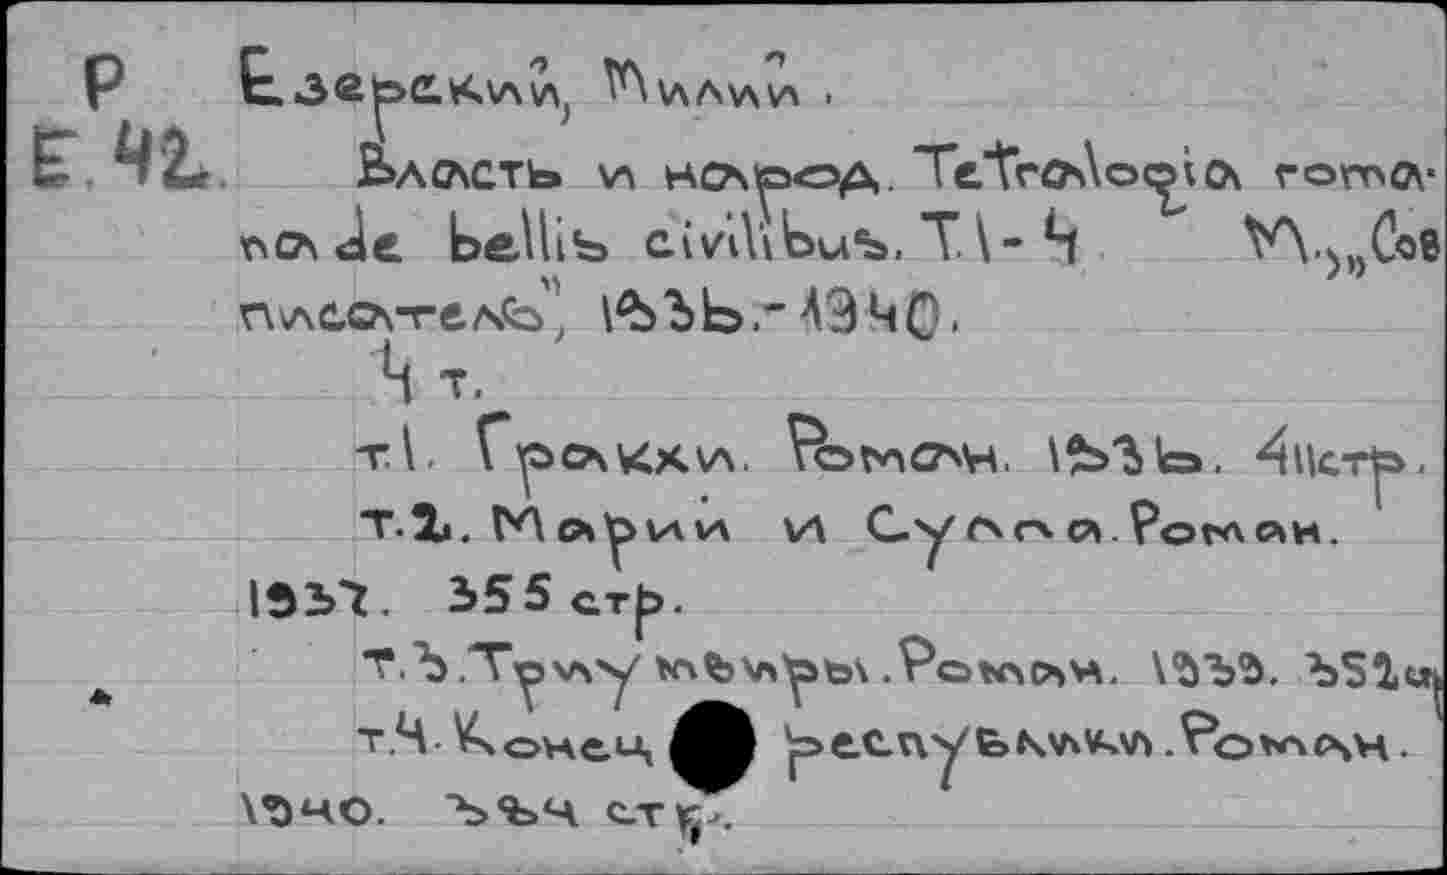 Р Езерский, Милий.
Е 42. Власть и народ. Tetralogia roma-
na de bellis civilibus. Т.1-4 М.,„Сов
писатель", 1936.-1940.
4 т.
т.1. Гракхи. Роман. 1936. стр.
т.2. Марии и Сулла. Роман.
1937. 355 стр.
т.3. Триумвиры. Роман. 1939. 352 ст
т.4. Конец республики. Роман.
1940. стр.